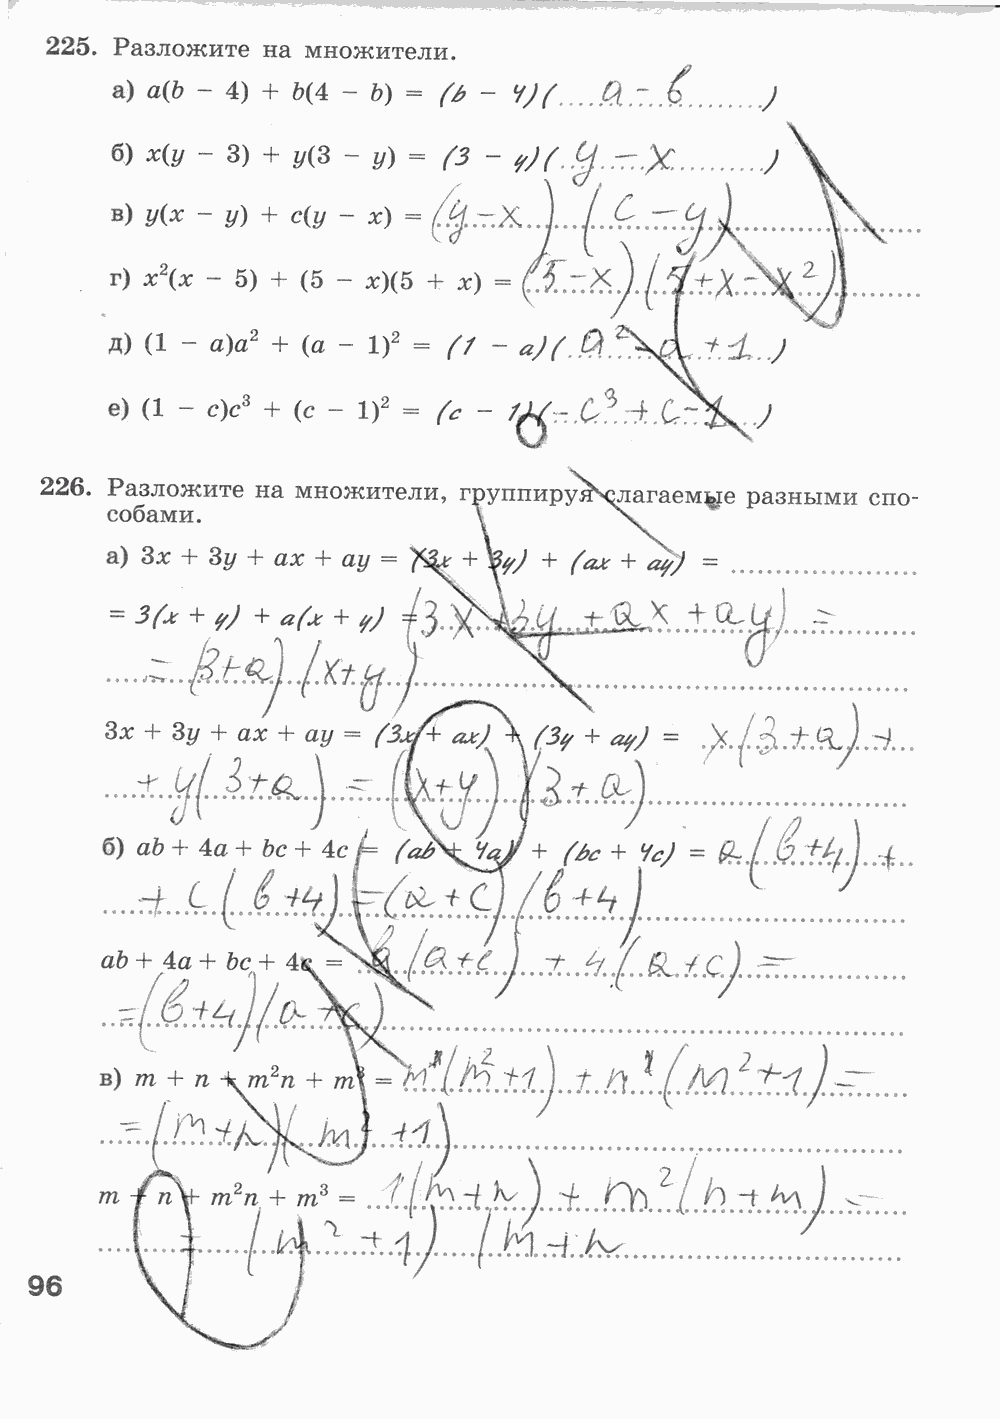 225. Разложите на множители.
а) a(b − 4) + b(4 − b) = (b − 4)(a − b)
б) x(y − 3) + y(3 − y) = (3 − y)(y − x)
в) y(x − y) + c(y − x) = (y − x)(c − y)
г) x²(x − 5) + (5 − x)(5 + x) = (5 − x)(5 + x − x²)
д) (1 − a)a² + (a − 1)² = (1 − a)(a² − a + 1)
е) (1 − c)c³ + (c − 1)² = (c − 1)(−c³ + c − 1)
226. Разложите на множители, группируя слагаемые разными спо-
собами.
а) 3x + 3y + ax + ay = (3x + 3y) + (ax + ay) =
= 3(x + y) + a(x + y) = (3x + 3y + ax + ay) =
= (3 + a)(x + y)
3x + 3y + ax + ay = (3x + ax) + (3y + ay) = x(3 + a) +
+ y(3 + a) = (x + y)(3 + a)
б) ab + 4a + bc + 4c = (ab + 4a) + (bc + 4c) = a(b + 4) +
+ c(b + 4) = (a + c)(b + 4)
ab + 4a + bc + 4c = b(a + c) + 4(a + c) =
= (b + 4)(a + c)
в) m + n + m²n + m³ = m(m² + 1) + n(m² + 1) =
= (m + n)(m² + 1)
m + n + m²n + m³ = 1(m + n) + m²(n + m) =
= (m² + 1)(m + n
96